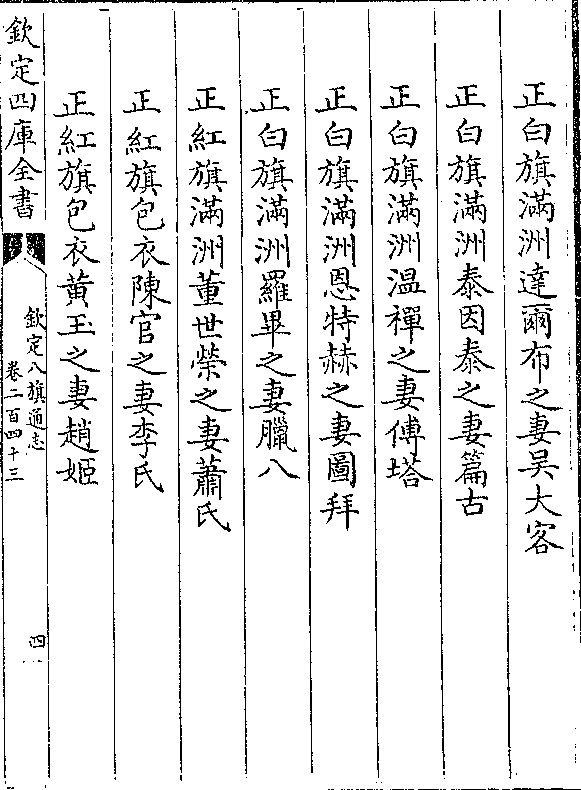 正白旗滿洲達爾布之妻吴大客
正白旗滿洲泰因泰之妻篇古
正白旗滿洲温禪之妻傅塔
正白旗滿洲恩特赫之妻圖拜
正白旗滿洲羅畢之妻臘八
正紅旗滿洲董世榮之妻蕭氏
正紅旗包衣陳官之妻李氏
正紅旗包衣黄玉之妻趙姬
欽定四庫全書
欽定八旗通志
卷二百四十三
四